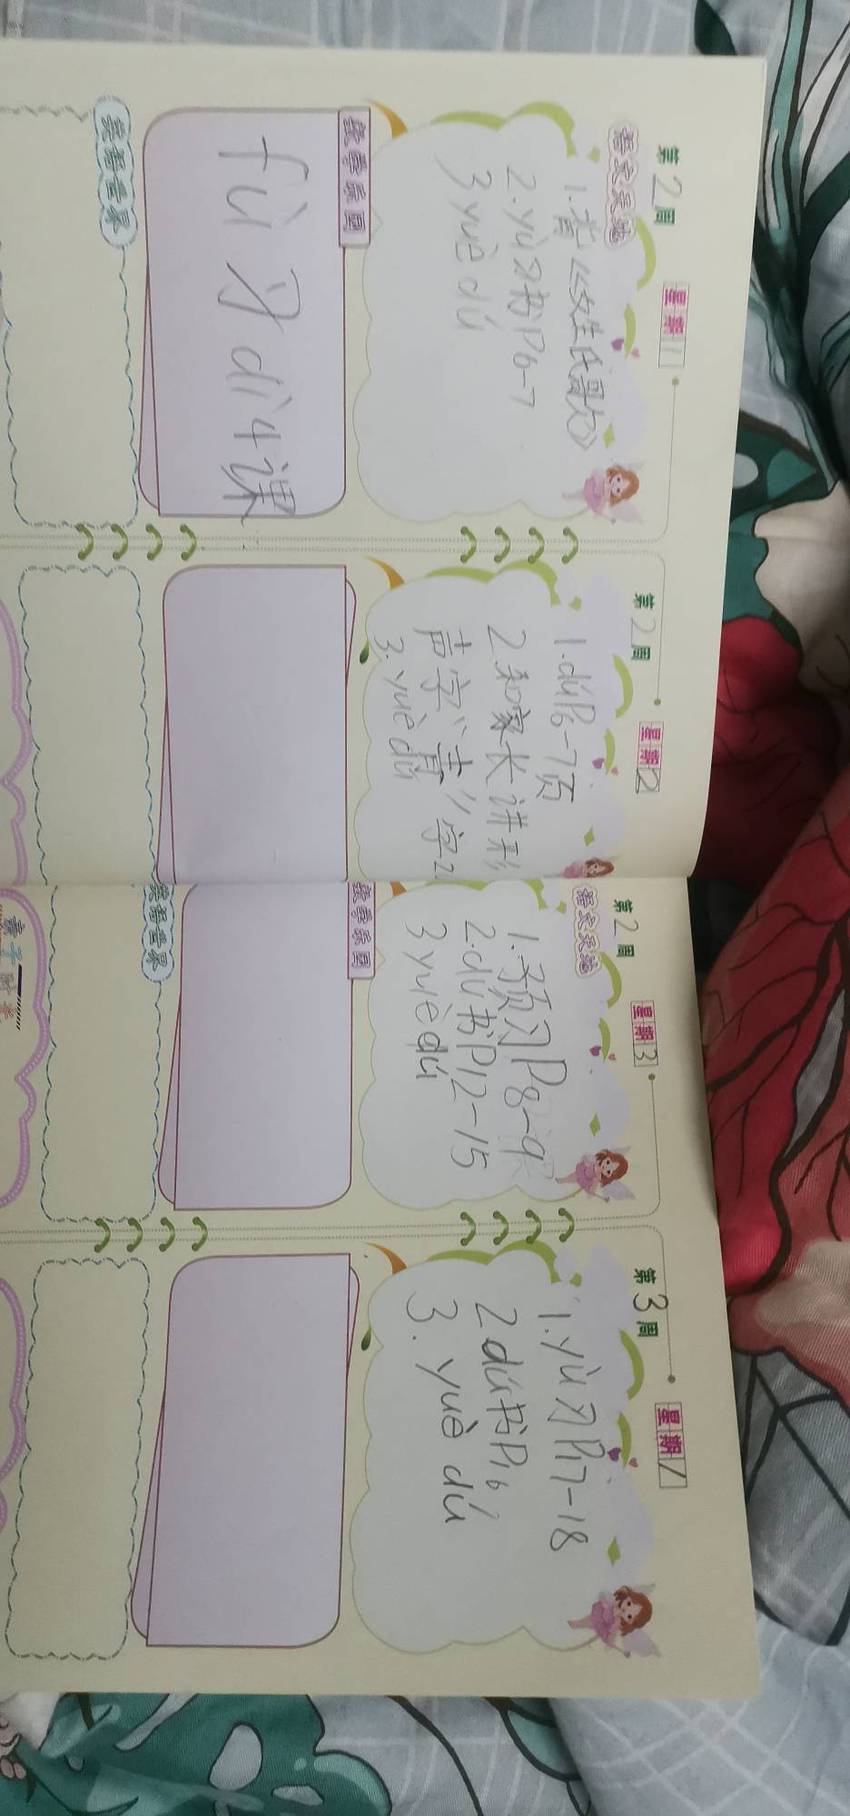 第2周 星期1
语文天地
1.背《姓氏歌》
2.yù习书P6-7
3 yuè dú
数学乐园
fù习dì4课
英语世界
第2周 星期2
1.dúP6-7页
2.和家长讲形
声字"青"字2
3.yuè dú
第2周 星期3
语文天地
1.预习P8-9
2.dú书P12-15
3 yuè dú
数学乐园
英语世界
第3周 星期1
1.yù习P17-18
2 dú书P16
3. yuè dú